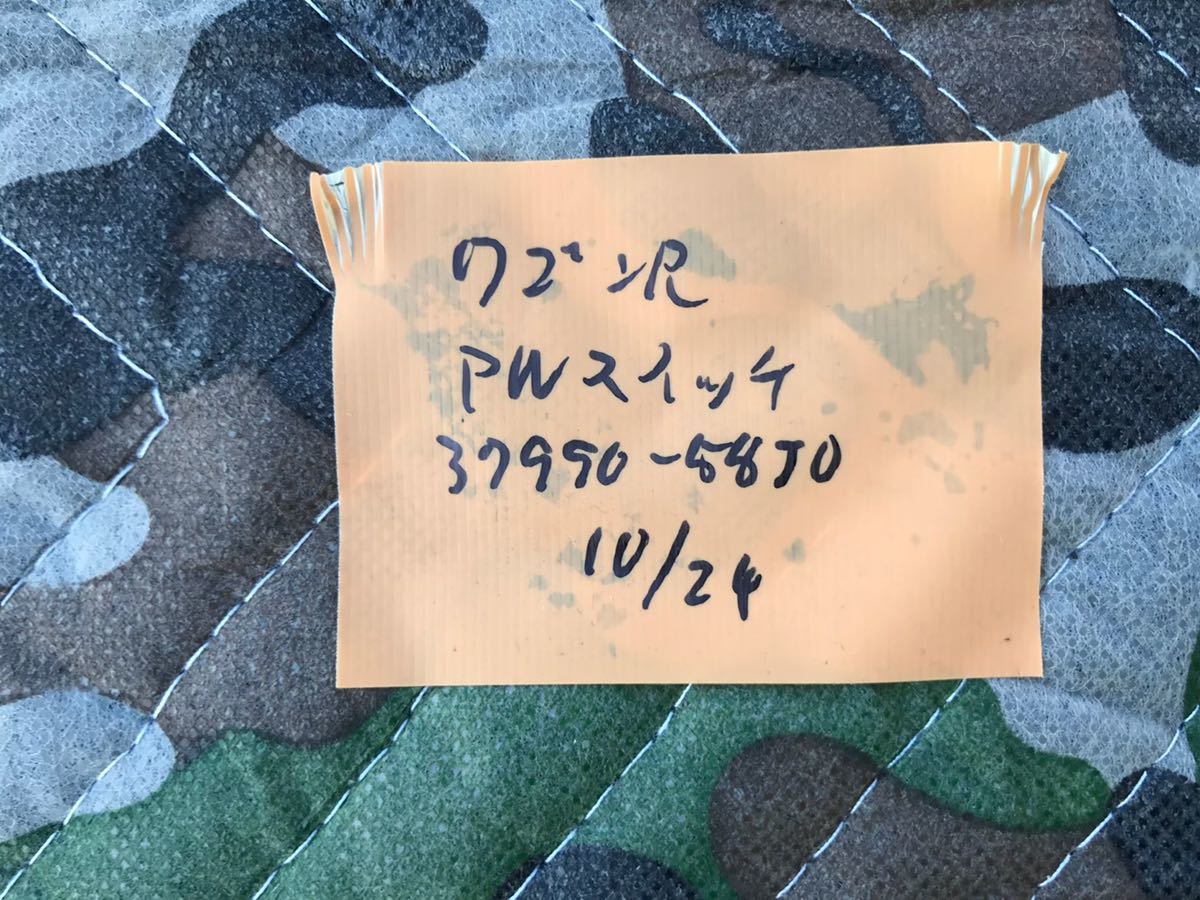 ワゴンR
PWスイッチ
37990-58J0
10/24